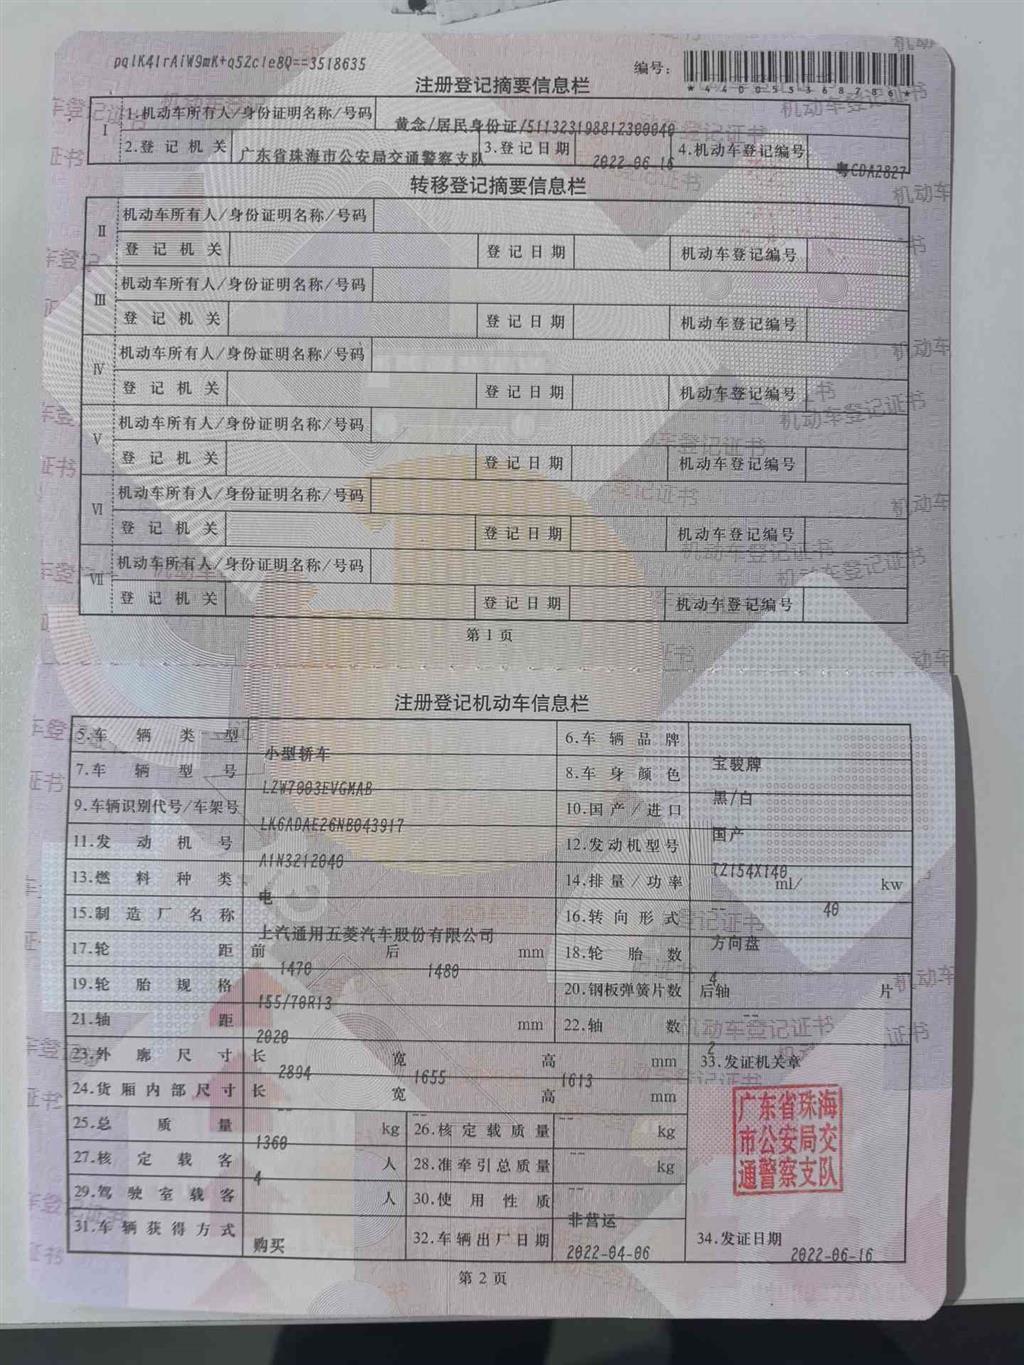 pqlK41rAiW9mK+q52cIe8Q==3518635
编号：
*440055368786*
注册登记摘要信息栏
I 1.机动车所有人/身份证明名称/号码 黄念/居民身份证/511323198812300040
2.登记机关 广东省珠海市公安局交通警察支队 3.登记日期 2022-06-16 4.机动车登记编号 粤CDA2827
转移登记摘要信息栏
II 机动车所有人/身份证明名称/号码
登记机关 登记日期 机动车登记编号
III 机动车所有人/身份证明名称/号码
登记机关 登记日期 机动车登记编号
IV 机动车所有人/身份证明名称/号码
登记机关 登记日期 机动车登记编号
V 机动车所有人/身份证明名称/号码
登记机关 登记日期 机动车登记编号
VI 机动车所有人/身份证明名称/号码
登记机关 登记日期 机动车登记编号
VII 机动车所有人/身份证明名称/号码
登记机关 登记日期 机动车登记编号
第1页
注册登记机动车信息栏
5.车辆类型 小型轿车 6.车辆品牌 宝骏牌
7.车辆型号 LZW7003EVGMAB 8.车身颜色 黑/白
9.车辆识别代号/车架号 LK6ADAE26NB043917 10.国产/进口 国产
11.发动机号 A1N3212040 12.发动机型号 TZ154X140
13.燃料种类 电 14.排量/功率 -- ml/ 40 kw
15.制造厂名称 上汽通用五菱汽车股份有限公司 16.转向形式 方向盘
17.轮距 前 1470 后 1480 mm 18.轮胎数 4
19.轮胎规格 155/70R13 20.钢板弹簧片数 后轴 -- 片
21.轴距 2020 mm 22.轴数 2
23.外廓尺寸 长 2894 宽 1655 高 1613 mm 33.发证机关章
24.货厢内部尺寸 长 -- 宽 -- 高 -- mm
25.总质量 1360 kg 26.核定载质量 -- kg
27.核定载客 4 人 28.准牵引总质量 -- kg
29.驾驶室载客 人 30.使用性质 非营运
31.车辆获得方式 购买 32.车辆出厂日期 2022-04-06 34.发证日期 2022-06-16
广东省珠海
市公安局交
通警察支队
第2页